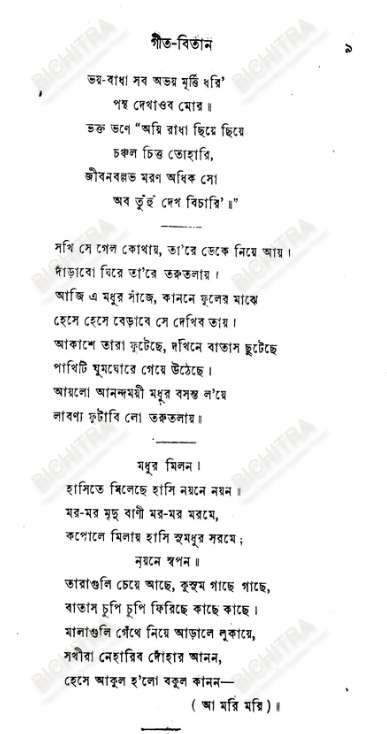 গীত-বিতান ৯
ভয়-বাধা সব অভয় মূর্ত্তি ধরি'
পন্থ দেখাওব মোর॥
ভক্ত ভণে “অয়ি রাধা ছিয়ে ছিয়ে
চঞ্চল চিত্ত তোহারি,
জীবনবল্লভ মরণ অধিক সো
অব তুঁহুঁ দেখ বিচারি'॥”
সখি সে গেল কোথায়, তা'রে ডেকে নিয়ে আয়।
দাঁড়াবো ঘিরে তা'রে তরুতলায়।
আজি এ মধুর সাঁজে, কাননে ফুলের মাঝে
হেসে হেসে বেড়াবে সে দেখিব তায়।
আকাশে তারা ফুটেছে, দখিনে বাতাস ছুটেছে
পাখিটি ঘুমঘোরে গেয়ে উঠেছে।
আয়লো আনন্দময়ী মধুর বসন্ত ল'য়ে
লাবণ্য ফুটাবি লো তরুতলায়॥
মধুর মিলন।
হাসিতে মিলেছে হাসি নয়নে নয়ন॥
মর-মর মৃদু বাণী মর-মর মরমে,
কপোলে মিলায় হাসি সুমধুর সরমে;
নয়নে স্বপন॥
তারাগুলি চেয়ে আছে, কুসুম গাছে গাছে,
বাতাস চুপি চুপি ফিরিছে কাছে কাছে।
মালাগুলি গেঁথে নিয়ে আড়ালে লুকায়ে,
সখীরা নেহারিব দোঁহার আনন,
হেসে আকুল হ'লো বকুল কানন—
( আ মরি মরি )॥
BICHITRA